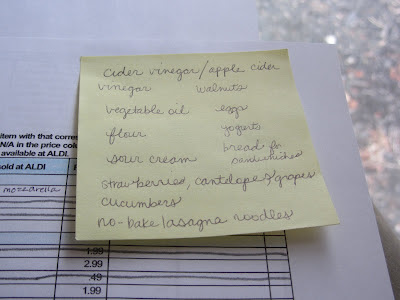 cider vinegar/apple cider
vinegar walnuts
vegetable oil eggs
flour yogurts
bread for
sour cream sandwhiches
strawberries, cantelope & grapes
cucumbers
no-bake lasagna noodles
item with that corres
N/A in the price colu
available at ALDI.
sold at ALDI
mozzarella
1.99
2.99
.49
1.99